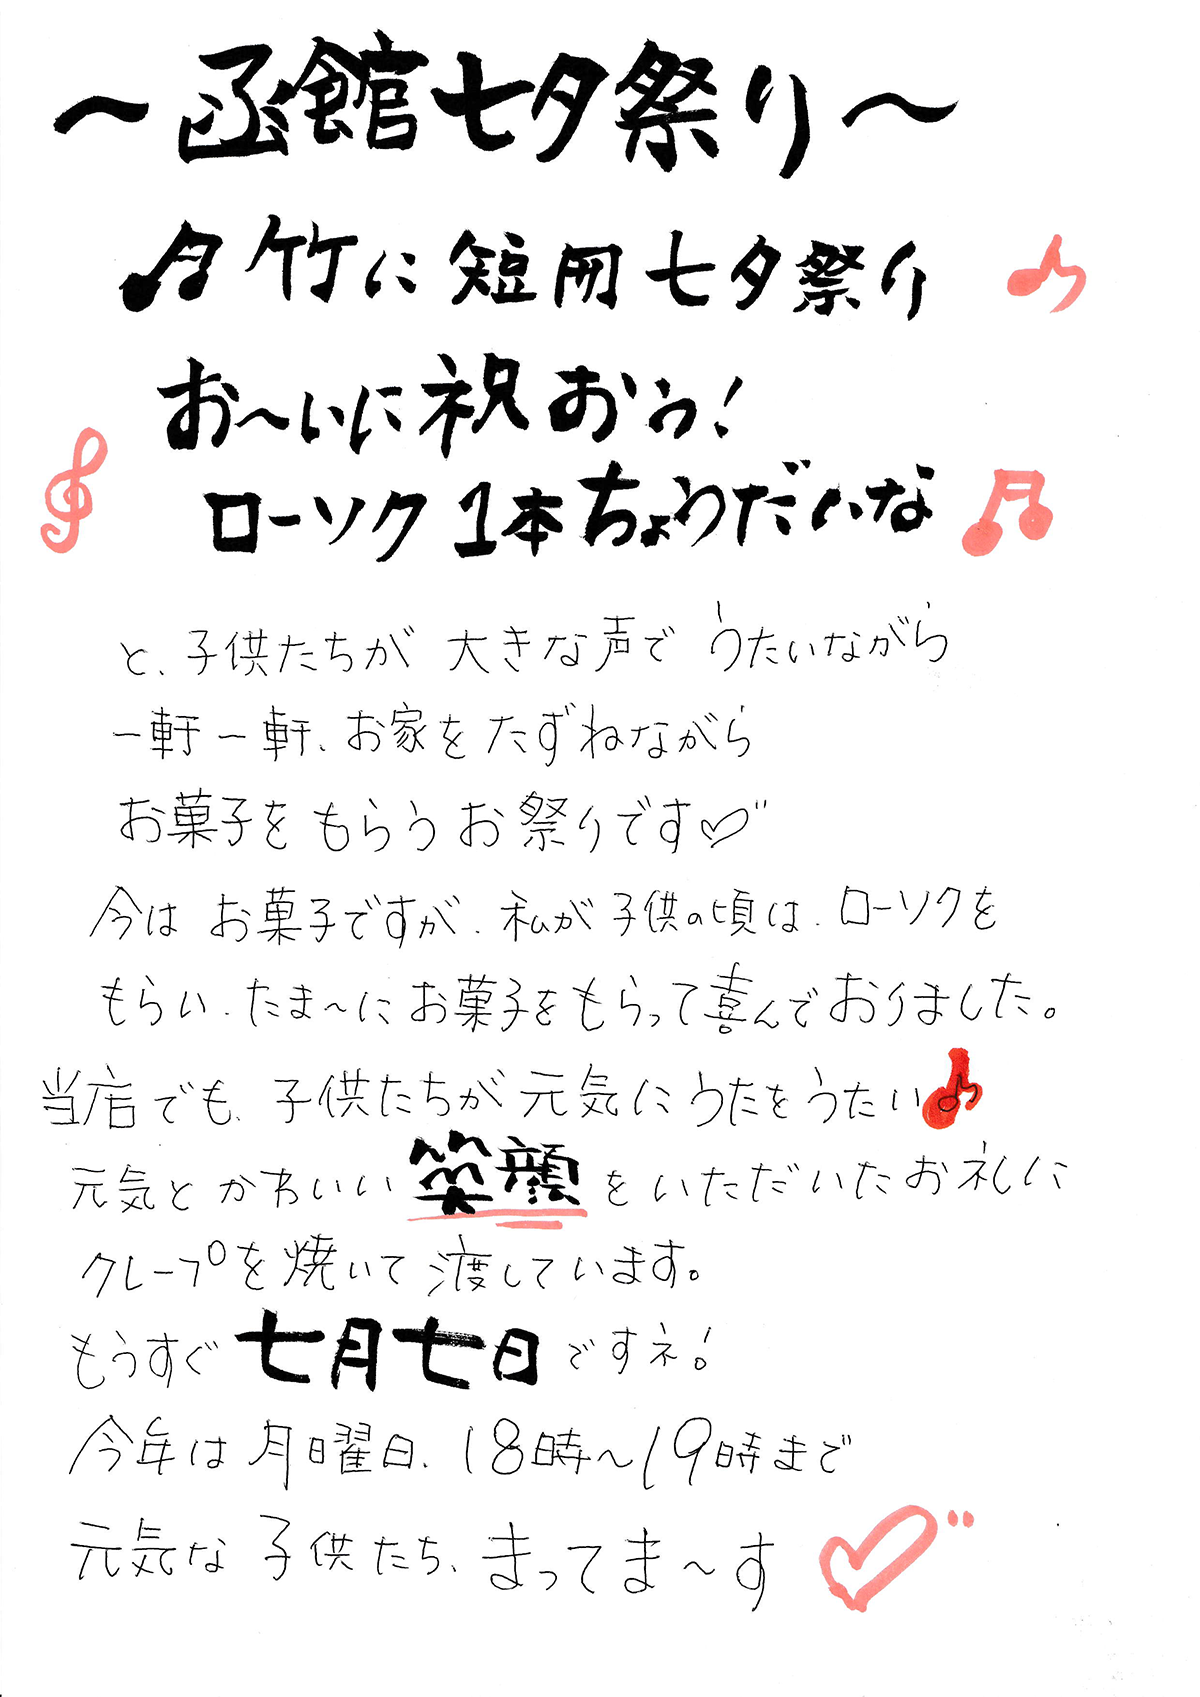 ～函館七夕祭り～
♫竹に短冊七夕祭り♪
お～いに祝おう!
ローソク1本ちょうだいな♫
と、子供たちが 大きな声で うたいながら
一軒一軒、お家をたずねながら
お菓子をもらうお祭りです♡"
今はお菓子ですが、私が子供の頃は、ローソクを
もらい、たま～にお菓子をもらって喜んでおりました。
当店でも、子供たちが元気にうたをうたい♪
元気とかわいい笑顔をいただいたお礼に
クレープを焼いて渡しています。
もうすぐ七月七日ですネ!
今年は月曜日、18時～19時まで
元気な子供たち、まってま～す♡"